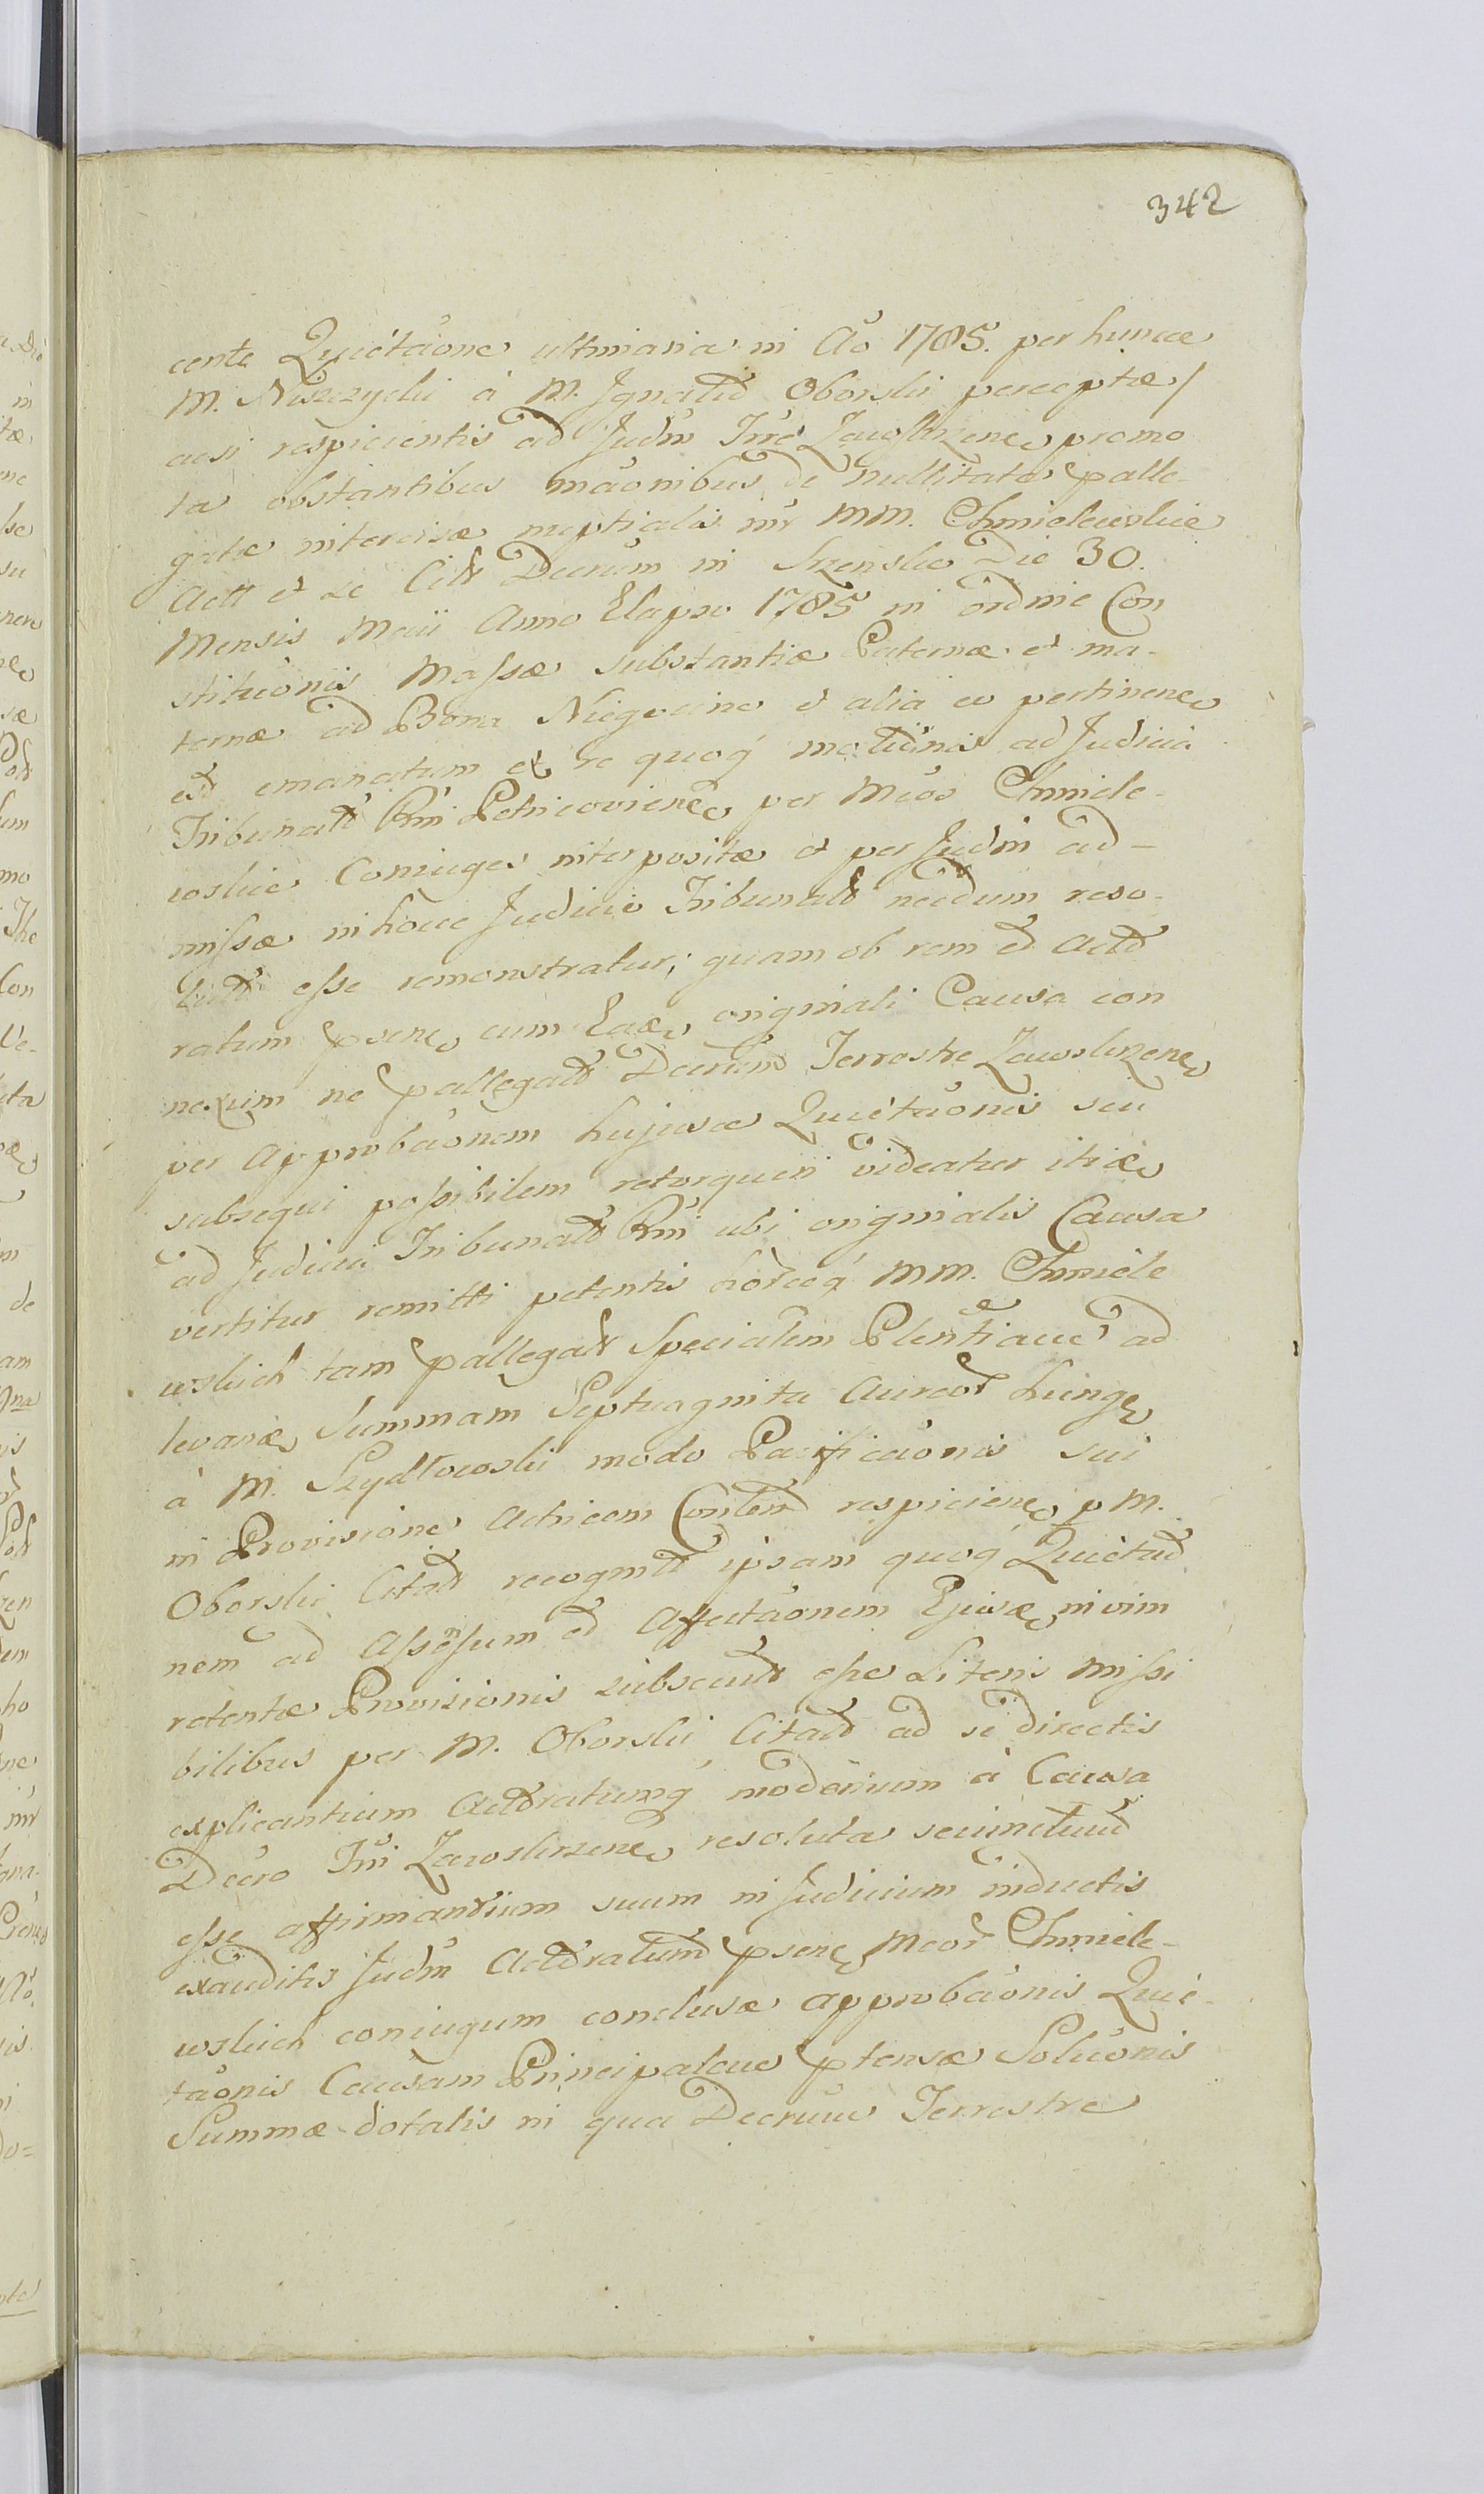 342
cente Quiétaõne ultimaria in Aõ 1785. per hunce
M. Niszczycki à M. Ignatio Oborski perceptæ/
acsi respicientis ad Judm Trre Zawskrzenẽ promo
ta obstantibus mãonibus de nullitate palle-
gatæ intercisæ nuptialis inr MM. Chmielewskie
Actt et se Citt Decrum in Szrensko Die 30.
Mensis Maii Anno Elapso 1785 in ordine Con
stituõnis Massæ substantiæ Paternæ et ma-
ternæ ad Bona Niegocino et alia eo pertinenẽ
est emanatum et se quoq́ moõnis ad Judicia
Tribunalt Rni Petricovienẽ per Mcos Chmiele-
wskie Coniuges interpositæ et per Judm ad-
missæ in hocce Judicio Tribunalt necdum reso-
lutt esse remonstratur; quam ob rem et Actt
ratum psenẽ cum Eaẽ originali Causa con
nexim ne pallegatt Decrum Terrestre Zawskrzenẽ
per Approbaõnem hujusce Quiétaõnis seu
subsequi possibilem retorqueri videatur itiæ
ad Judicia Tribunalt Rni ubi originalis Causa
vertitur remitti petentis horceq́ MM. Chmiele
wskich tam pallegatt Specialem Plentiãm ad
levanẽ Summam Septuaginta Aureor Hungẽ
à M. Szydłowski modo Pacificaõnis sui
in Provisione Actricem Contentt respicienẽ p M.
Oborski Citatt recognitt ipsam quoq́ Quiétaõ
nem ad Assensum et Affectaõnem Ejusẽ in vim
retentæ Provisionis subsecutt esse Literis missi
bilibus per M. Oborski Citatt ad se directis
explicantium Acttratumq́ modernum à Causa
Decro Tri Zawskrzenẽ resoluta seiunctum
esse affirmantium suum in Judicium inductis
exauditis Judm Acttratum psenẽ Mcor Chmiele-
wskich coniugum conclusæ approbaõnis Quié-
taõnis Causam Principalem ptensæ Soluõnis
Summæ dotalis in qua Decrum Terrestre